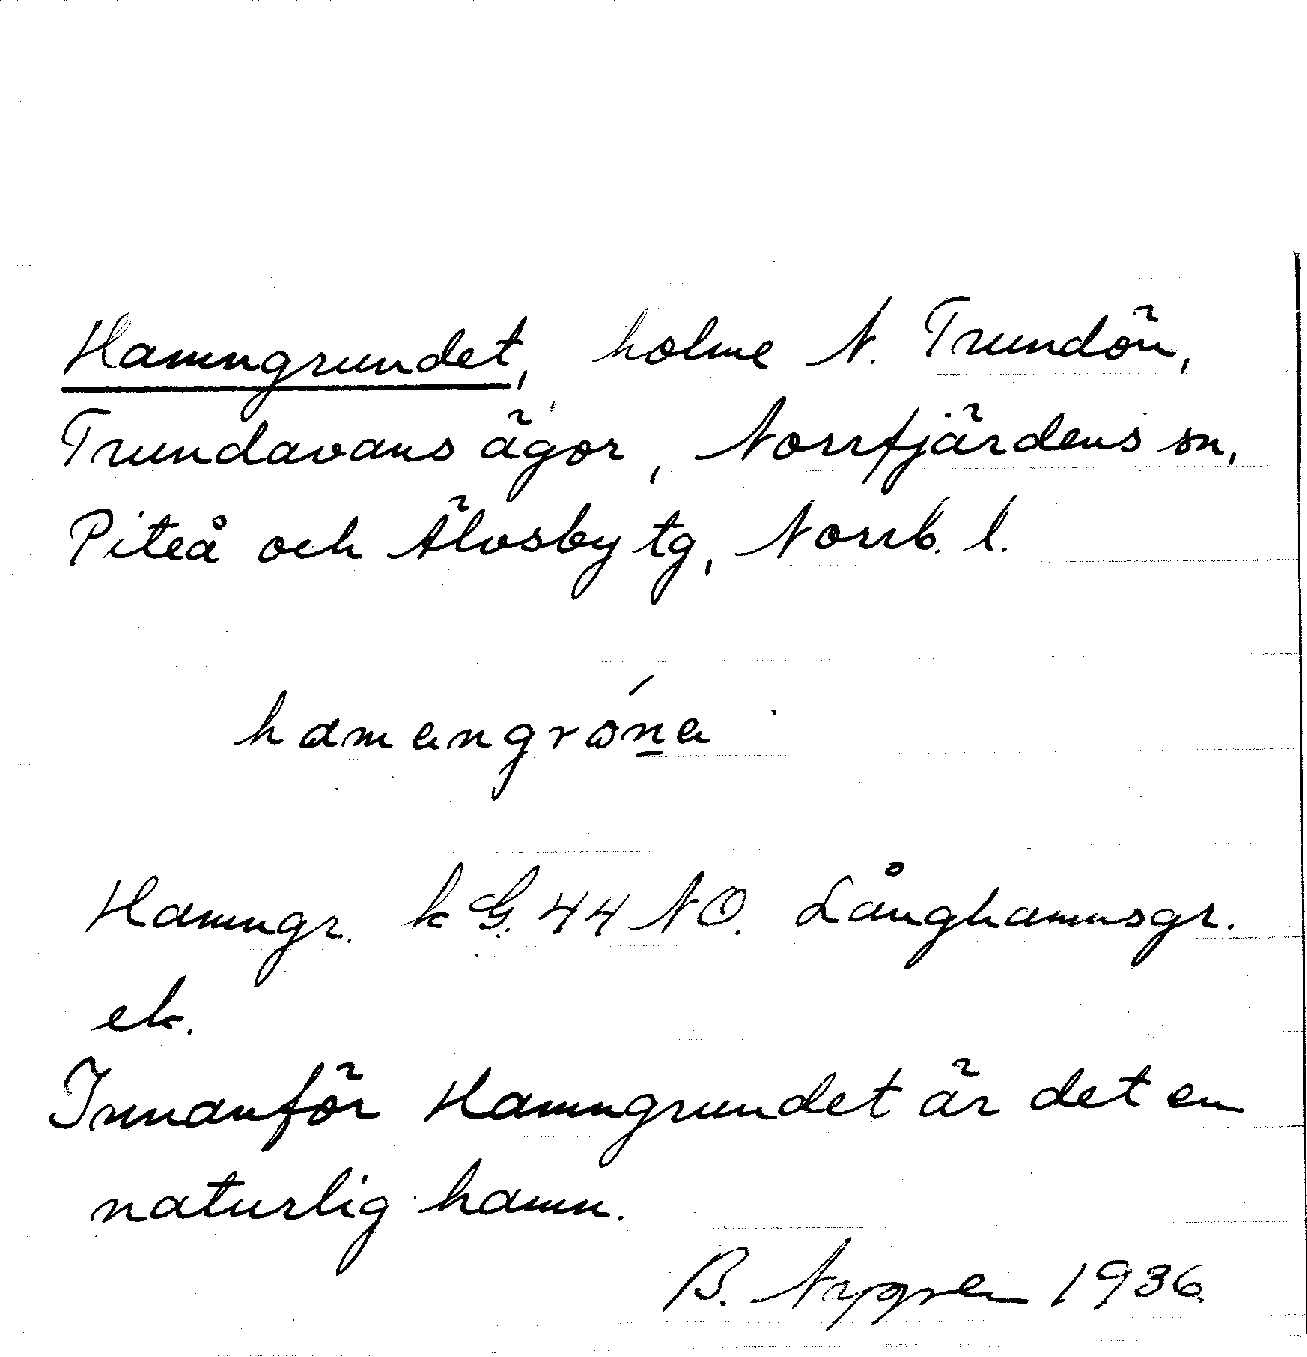 Hamngrundet, holme N. Trundön,
Trundavans ägor, Norrfjärdens sn,
Piteå och Älvsby tg, Norrb. l.
hamangróna
Hamngr. k G. 44 NO. Långhamnsgr.
ek.
Innanför Hamngrundet är det en
naturlig hamn.
B. Nygren 1936